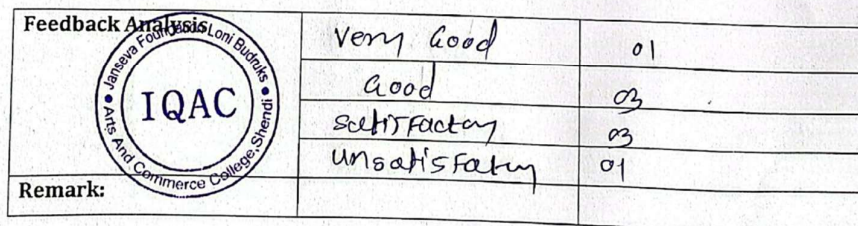 Feedback Analysis
Very Good 01
Good 03
satisfactory 03
unsatisfatry 01
Remark:
Janseva Foundation Loni Budruks
IQAC
Arts And Commerce College, Shendi